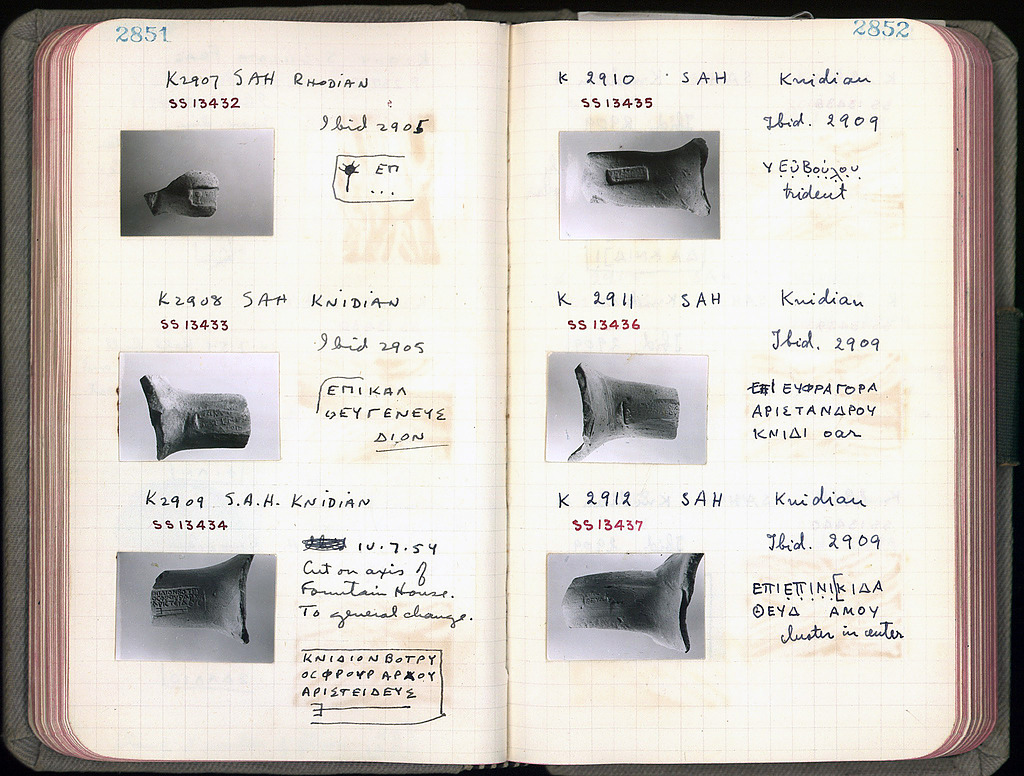 2851
K2907 SAH RHODIAN
SS 13432
Ibid 2905
ΕΠ
...
K2908 SAH KNIDIAN
SS 13433
Ibid 2905
ΕΠΙΚΑΛ
ΦΕΥΓΕΝΕΥΣ
ΔΙΟΝ
K2909 S.A.H. KNIDIAN
SS 13434
IV.7.54
Cut on axis of
Fountain House.
To general change.
ΚΝΙΔΙΟΝΒΟΤΡΥ
ΟΣΦΡΟΥΡΑΡΧΟΥ
ΑΡΙΣΤΕΙΔΕΥΣ
2852
K 2910 SAH Knidian
SS 13435
Ibid. 2909
Εὐβούλου
trident
K 2911 SAH Knidian
SS 13436
Ibid. 2909
ΕΥΦΡΑΓΟΡΑ
ΑΡΙΣΤΑΝΔΡΟΥ
ΚΝΙΔΙ oar
K 2912 SAH Knidian
SS 13437
Ibid. 2909
ΕΠΙΕΠΙΝΙ[ΚΙΔΑ
ΘΕΥΔ ΑΜΟΥ
cluster in center